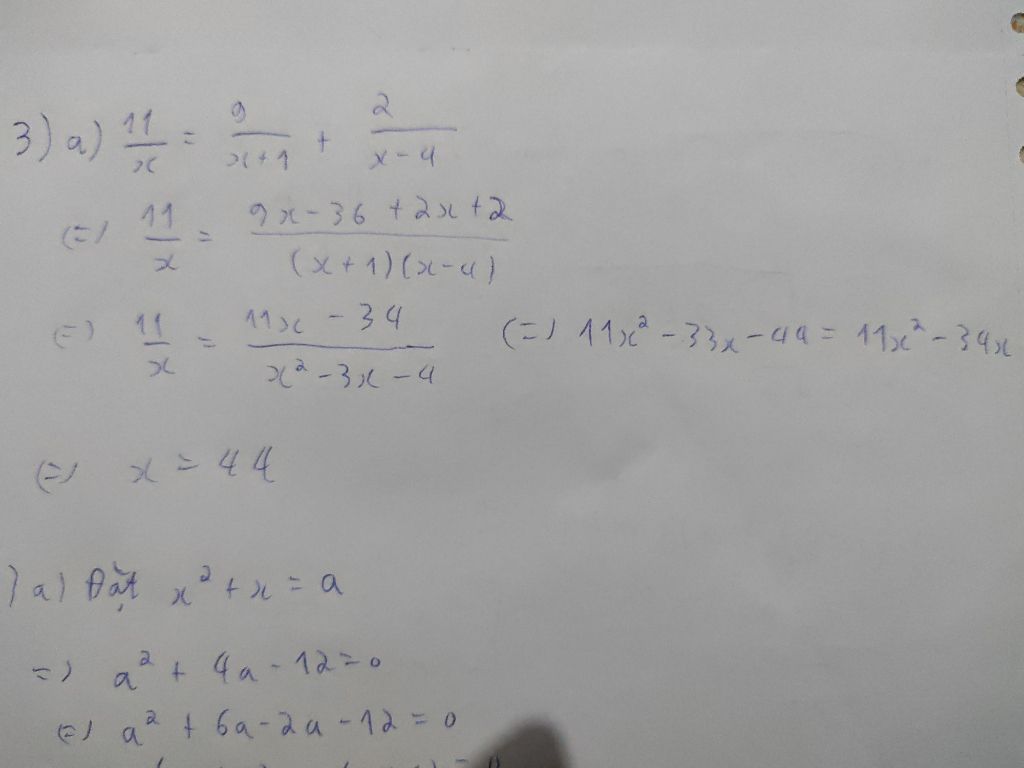 3) a) 11/x = 9/(x+1) + 2/(x-4)
(=) 11/x = (9x - 36 + 2x + 2)/((x+1)(x-4))
(=) 11/x = (11x - 34)/(x² - 3x - 4) (=) 11x² - 33x - 44 = 11x² - 34x
(=) x = 44
) a) Đặt x² + x = a
=) a² + 4a - 12 = 0
(=) a² + 6a - 2a - 12 = 0